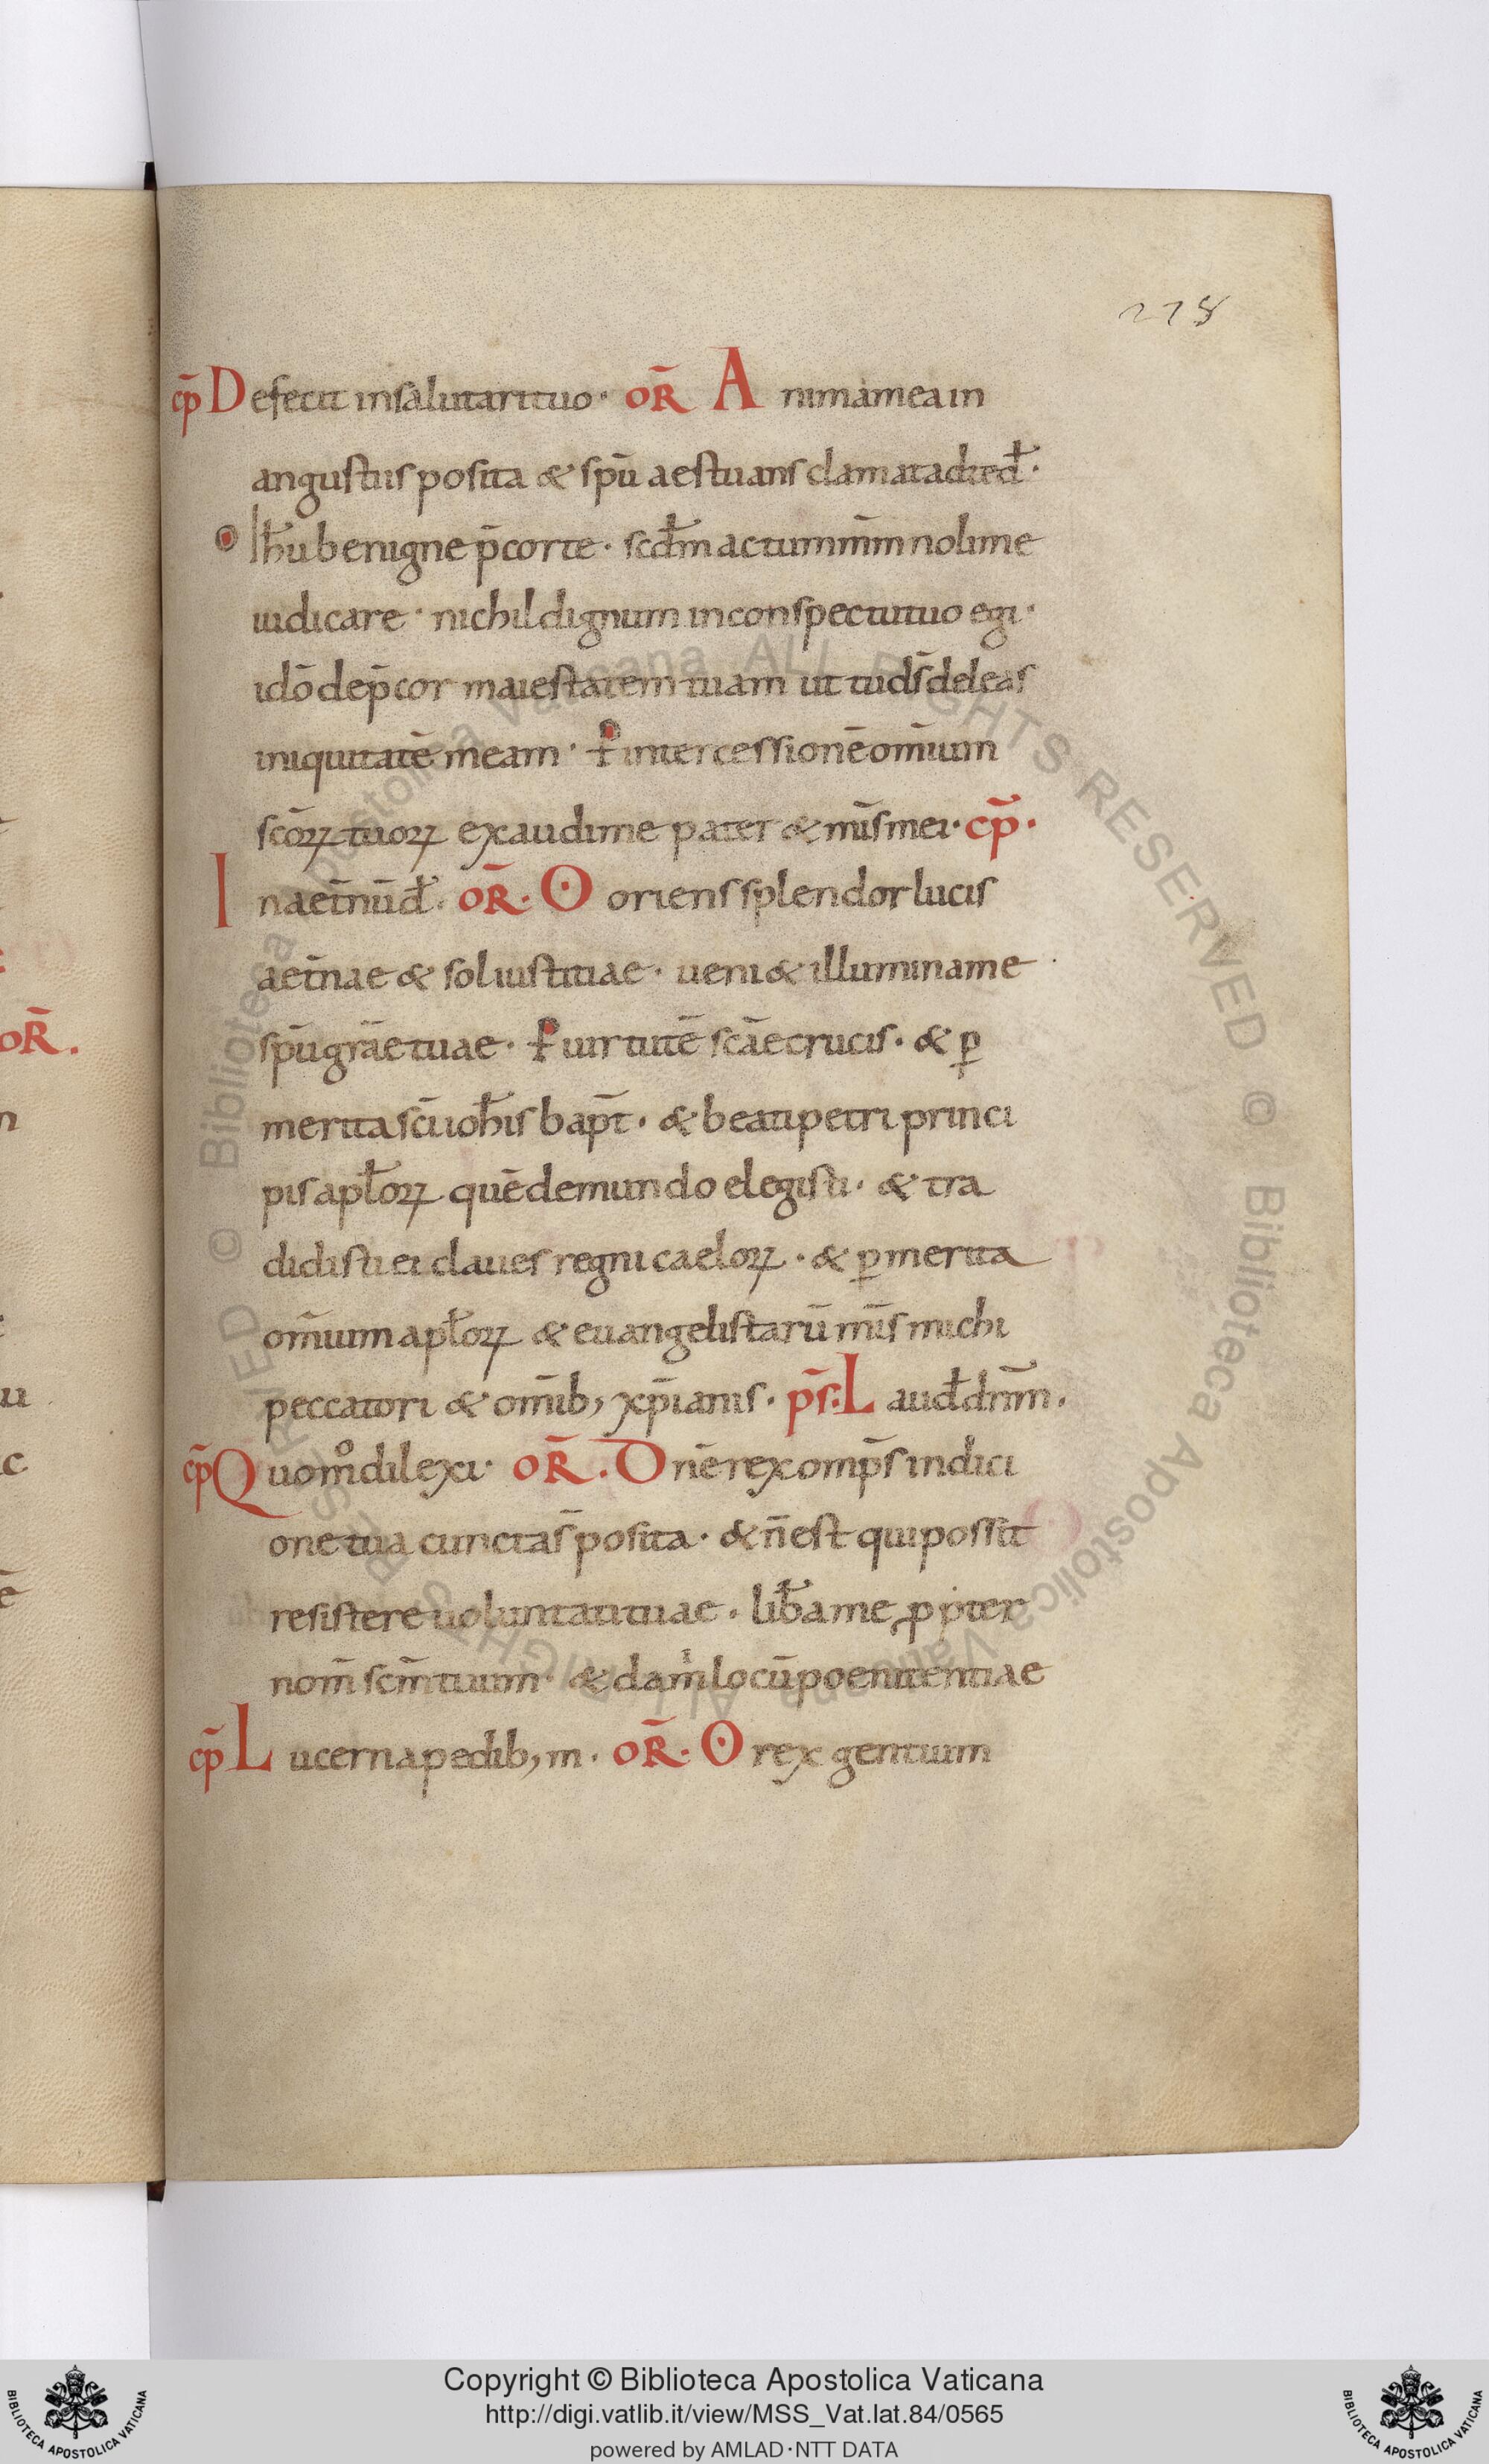 278
cp̄ Defecit in salutari tuo · OR̄ Anima mea in
angustiis posita & spū aestuans clamat ad te dł ·
O Ihū benigne p̄cor te · scdm̄ actum mm̄ noli me
iudicare · nichil dignum in conspectu tuo egi ·
idō dep̄cor maiestatem tuam ut tu ds̄ deleas
iniquitatē meam · P intercessionē om̄ium
scōꝝ tuoꝝ exaudi me pater & mis̄ mei · cp̄ ·
In aet̄nū dł · OR̄ · O oriens splendor lucis
aet̄nae & sol iustitiae · ueni & illumina me
spū grāe tuae · P uirtutē scāe crucis · & ꝑ
merita scī ioħis bapt̄ · & beati petri princi
pis apłoꝝ quē de mundo elegisti · & tra
didisti ei claues regni caeloꝝ · & ꝑ merita
om̄ium apłoꝝ & euangelistarū mis̄ michi
peccatori & om̄ib; xp̄ianis · ps̄ · L aud̄ dn̄m ·
cp̄ Quom̊ dilexi · OR̄ · Dn̄e rex omp̄s in dici
one tua cuncta s̄ posita · & n̄ est qui possit
resistere uoluntati tuae · lib̄a me ꝓpter
nom̄ scm̄ tuum · & da m̍ locū poenitentiae
cp̄ Lucerna pedib; m · OR̄ · O rex gentium
OR̄ ·
n
u
c
ē
Copyright © Biblioteca Apostolica Vaticana
http://digi.vatlib.it/view/MSS_Vat.lat.84/0565
powered by AMLAD·NTT DATA
BIBLIOTECA APOSTOLICA VATICANA
BIBLIOTECA APOSTOLICA VATICANA
© Biblioteca Apostolica Vaticana ALL RIGHTS RESERVED © Biblioteca Apostolica Vaticana ALL RIGHTS RESERVED